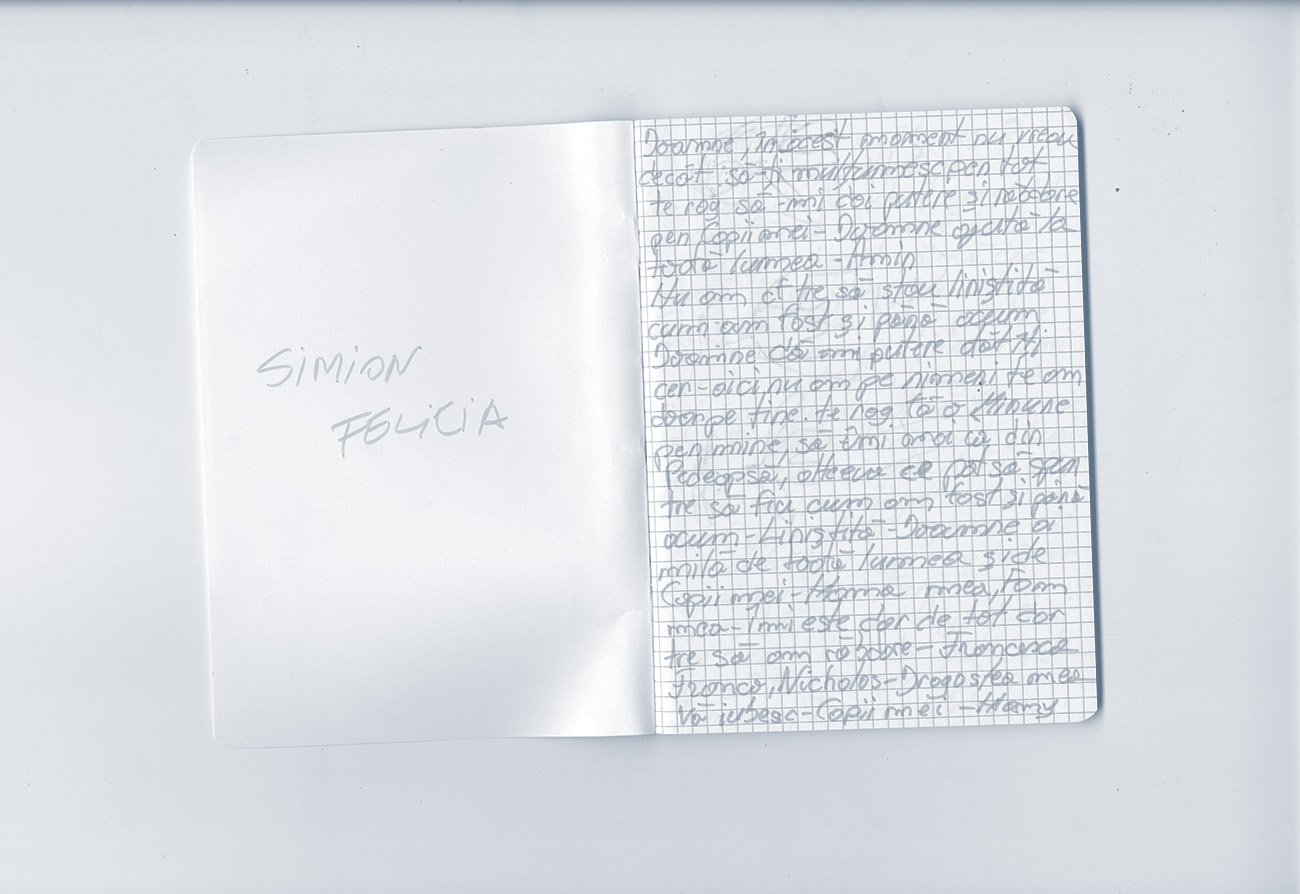 SIMION
FELICIA
Doamne, în acest moment nu vreau
decât să-ți mulțumesc pen tot
te rog să-mi dai putere și răbdare
pen Copii mei - Doamne ajută la
toată lumea - Amin
Nu am ce tre să stau liniștită
cum am fost și până acum
Doamne dă-mi putere atât îți
cer - aici nu am pe nimeni te am
doar pe tine. te rog fă o Minune
pen mine, să îmi dea din
Pedeapsă, altceva ce pot să spun
tre să fiu cum am fost și până
acum - Liniștită - Doamne ai
milă de toată lumea și de
Copii mei - Mama mea,
mea - Îmi este dor de tot dar
tre să am răbdare - Francesca
Franco, Nicholas - Dragostea mea
Vă iubesc - Copii mei - Mamy